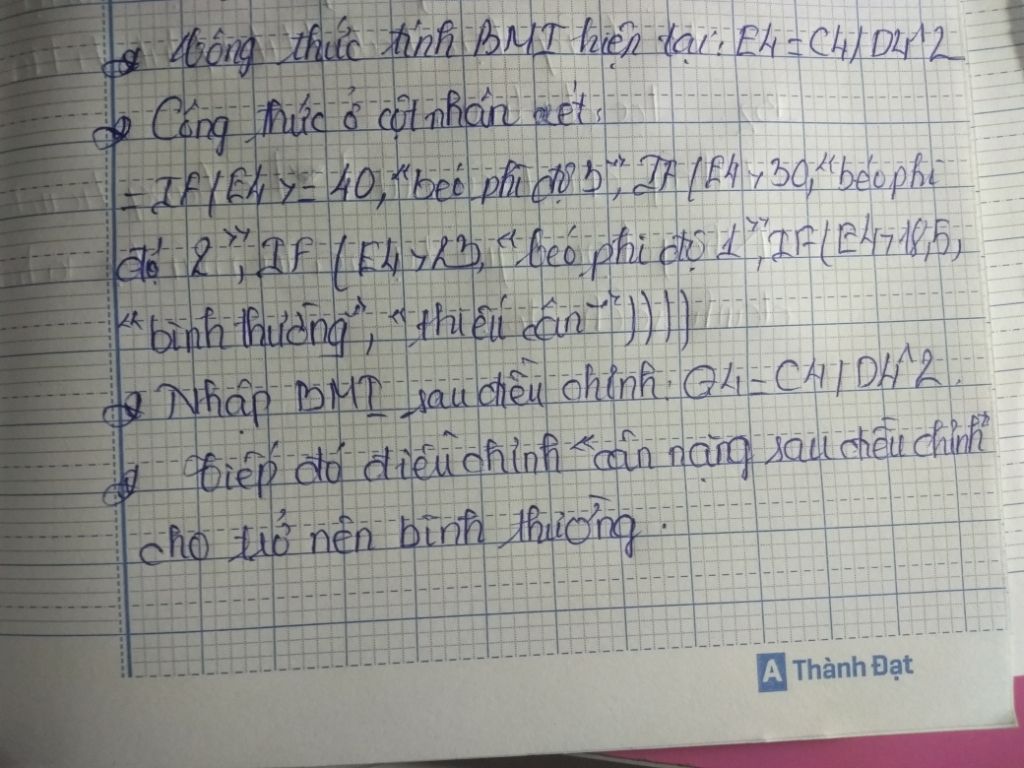 Công thức tính BMI hiện tại: E4 = C4/D4^2
Công thức ở cột nhận xét:
= IF(E4 >= 40, "béo phì độ 3", IF(E4 > 30, "béo phì
độ 2", IF (E4 > 23, "béo phì độ 1", IF(E4 > 18,5,
"bình thường", "thiếu cân"))))
Nhập BMI sau điều chỉnh: G4 = C4/D4^2.
tiếp đó điều chỉnh "cân nặng sau điều chỉnh"
cho trở nên bình thường.
A Thành Đạt